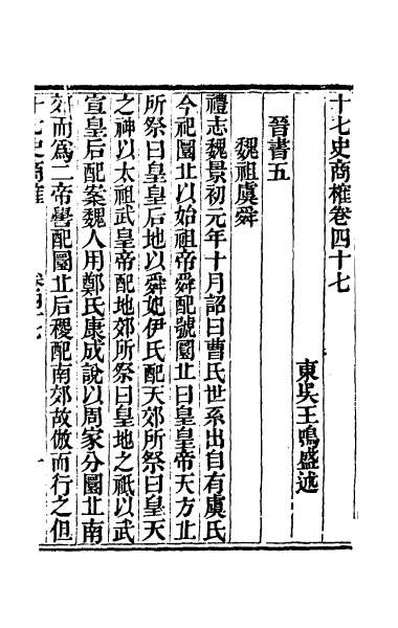 十七史商榷卷四十七
東吳王鳴盛述
晉書五
魏祖虞舜
禮志魏景初元年十月詔曰曹氏世系出自有虞氏
今祀圜北以始祖帝舜配號圜北曰皇皇帝天方北
所祭曰皇皇后地以舜妃伊氏配天郊所祭曰皇天
之神以太祖武皇帝配地郊所祭曰皇地之祇以武
宣皇后配案魏人用鄭氏康成說以周家分圜北南
郊而為二帝嚳配圜北后稷配南郊故倣而行之但
十七史商榷 卷四十七 一